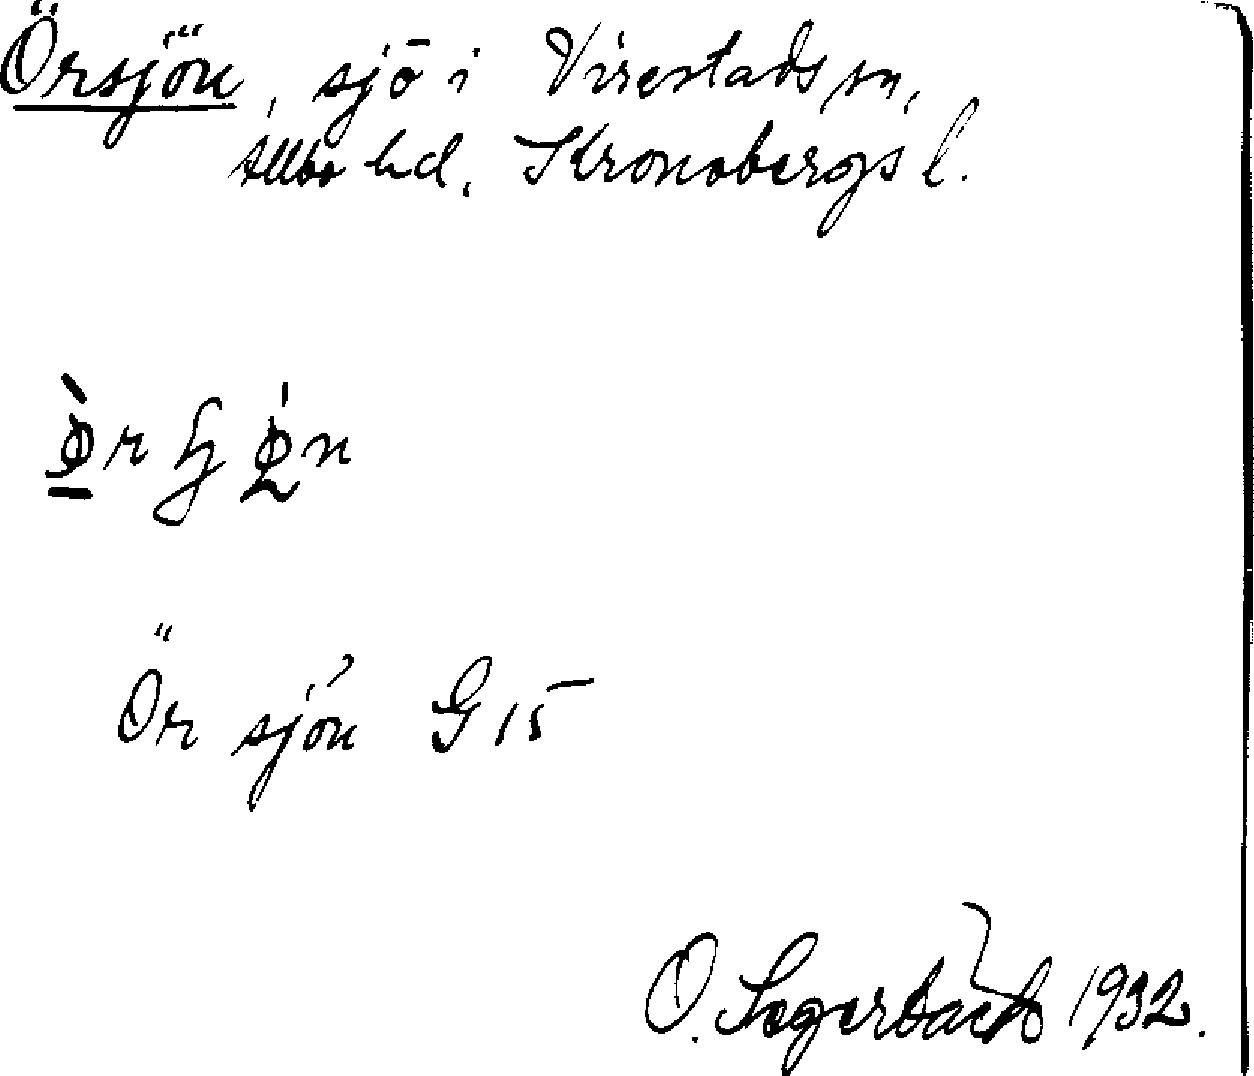 Örsjön, sjö i Virestads sn,
Allbo hd, Kronobergs l.
Ör sjön G 15
O. Segerbäck 1932.